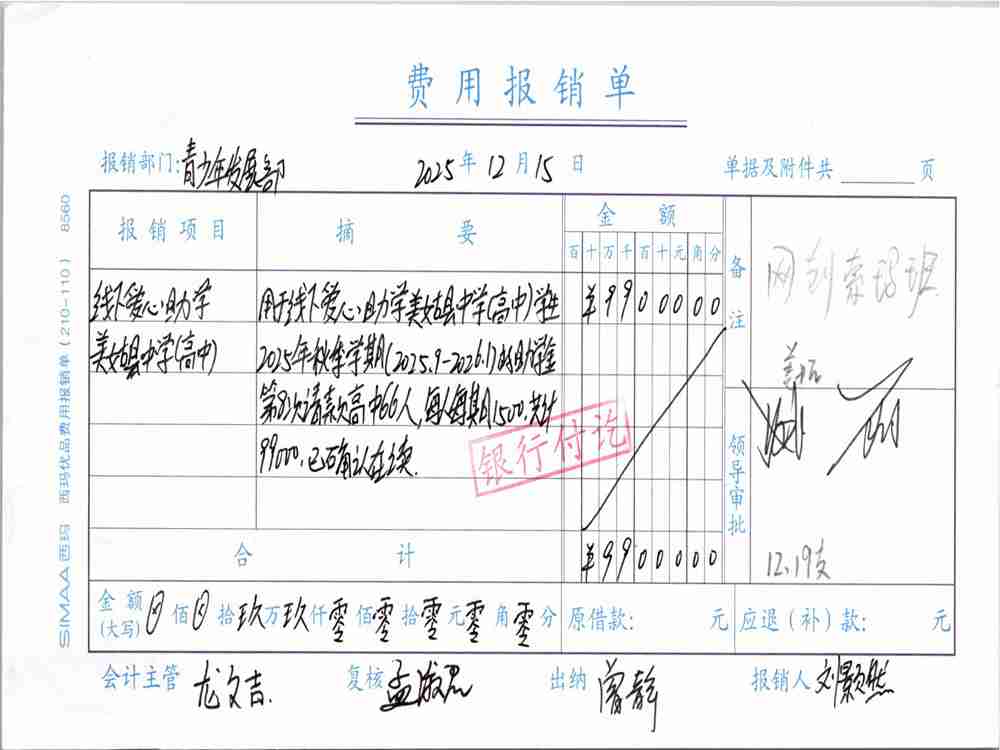 费用报销单
报销部门:青少年发展部 2025年12月15日 单据及附件共 页
报销项目 摘要 金额 备注
百十万千百十元角分
线下爱心助学 用于线下爱心助学美姑县中学(高中)学生 ¥9900000
美姑县中学(高中) 2025年秋季学期(2025.9-2026.1)的助学金
第8次请款高中66人,每人每期1500.共计
99000,已确认在续.
银行付讫
网到索玛班
领导审批
12.19支
合计 ¥9900000
金额(大写) 佰 拾玖万玖仟零佰零拾零元零角零分 原借款: 元 应退(补)款: 元
会计主管 尤文吉. 复核 孟淑思 出纳 曾静 报销人 刘颢然
SIMAA西玛 西玛优品费用报销单(210-110) 8560